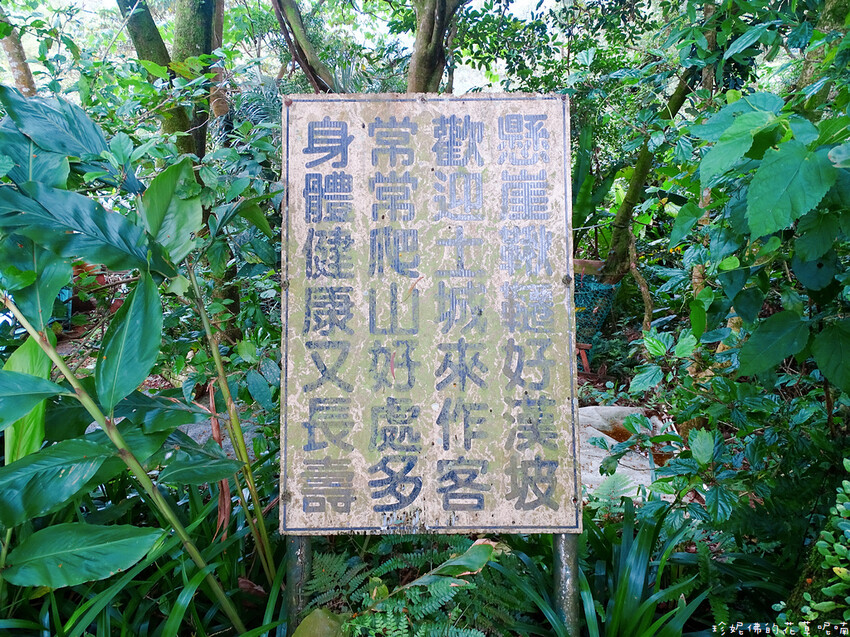 懸崖鞦韆好漢坡
歡迎土城來作客
常常爬山好處多
身體健康又長壽
珍妮佛的花意呢喃